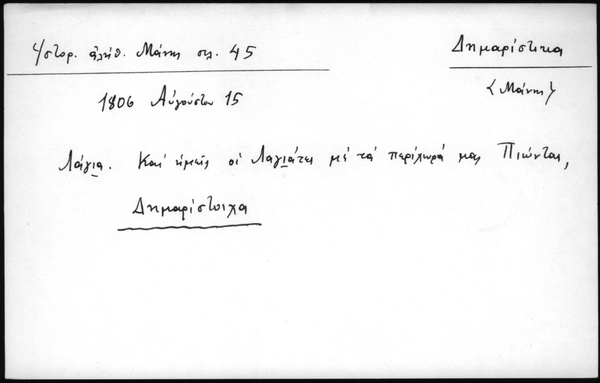 Ἱστορ. ἀλήθ. Μάνης σελ. 45
Δημαρίστικα
<Μάνη>
1806 Αὐγούστου 15
Λάγια. Καί ἡμεῖς οἱ Λαγιάτες μέ τά περίχωρά μας Πιώντες,
Δημαρίστοιχα